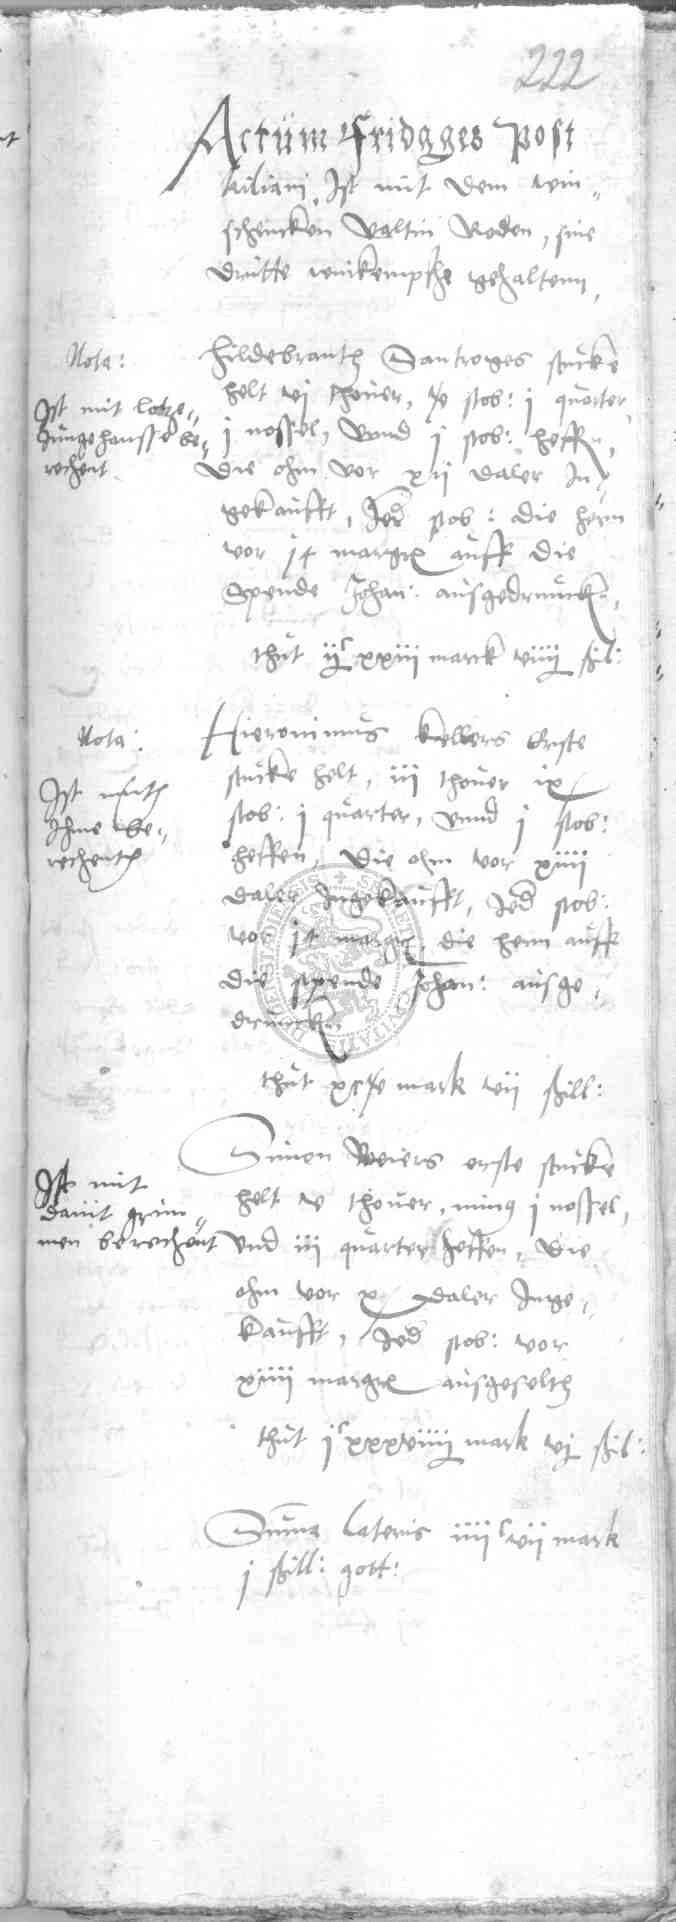 222
Actum Fridages Post
Kiliani, Ist mit dem win-
schencken Valtin Roden, sine
dritte winkempffe gehaltenn,
Nota:
Ist mit lotze
Jungehansse be-
rechent
Hildebranth Santroges stucke
helt vj thover, stob: j quarter
j nossel, Vnnd j stob: heffen,
die ohm vor xij daler In-
gekaufft, Jed stob: die hern
vor j4 margk auff die
Spende Johan: ausgedruncken,
thut ijc xxiii marck viiij ßil:
Nota:
Ist mith
Ihme be-
rechenth
Hieronimus Kellers Erste
stucke helt, iii thover ix
stob: j quarter, vnnd j stob:
heffen, die ohm vor xiiii
daler Ingekaufft, Jed stob:
vor j4 margk, die hern auff
die spende Johan: ausge-
druncken
thut mark vii ßill:
Ist mit
davit grim-
men berechent
Simon Meiers erste stucke
helt v thover, minus j nossel,
Vnd iij quarter heffen, die
ohm vor x daler Inge-
kaufft, Jed stob: vor
xiiii margk ausgeselth
thut jc xxxviiij mark vj ßil:
Summa Lateris iiiic vii mark
j ßill: gott:
SECRETUM CIVITATIS